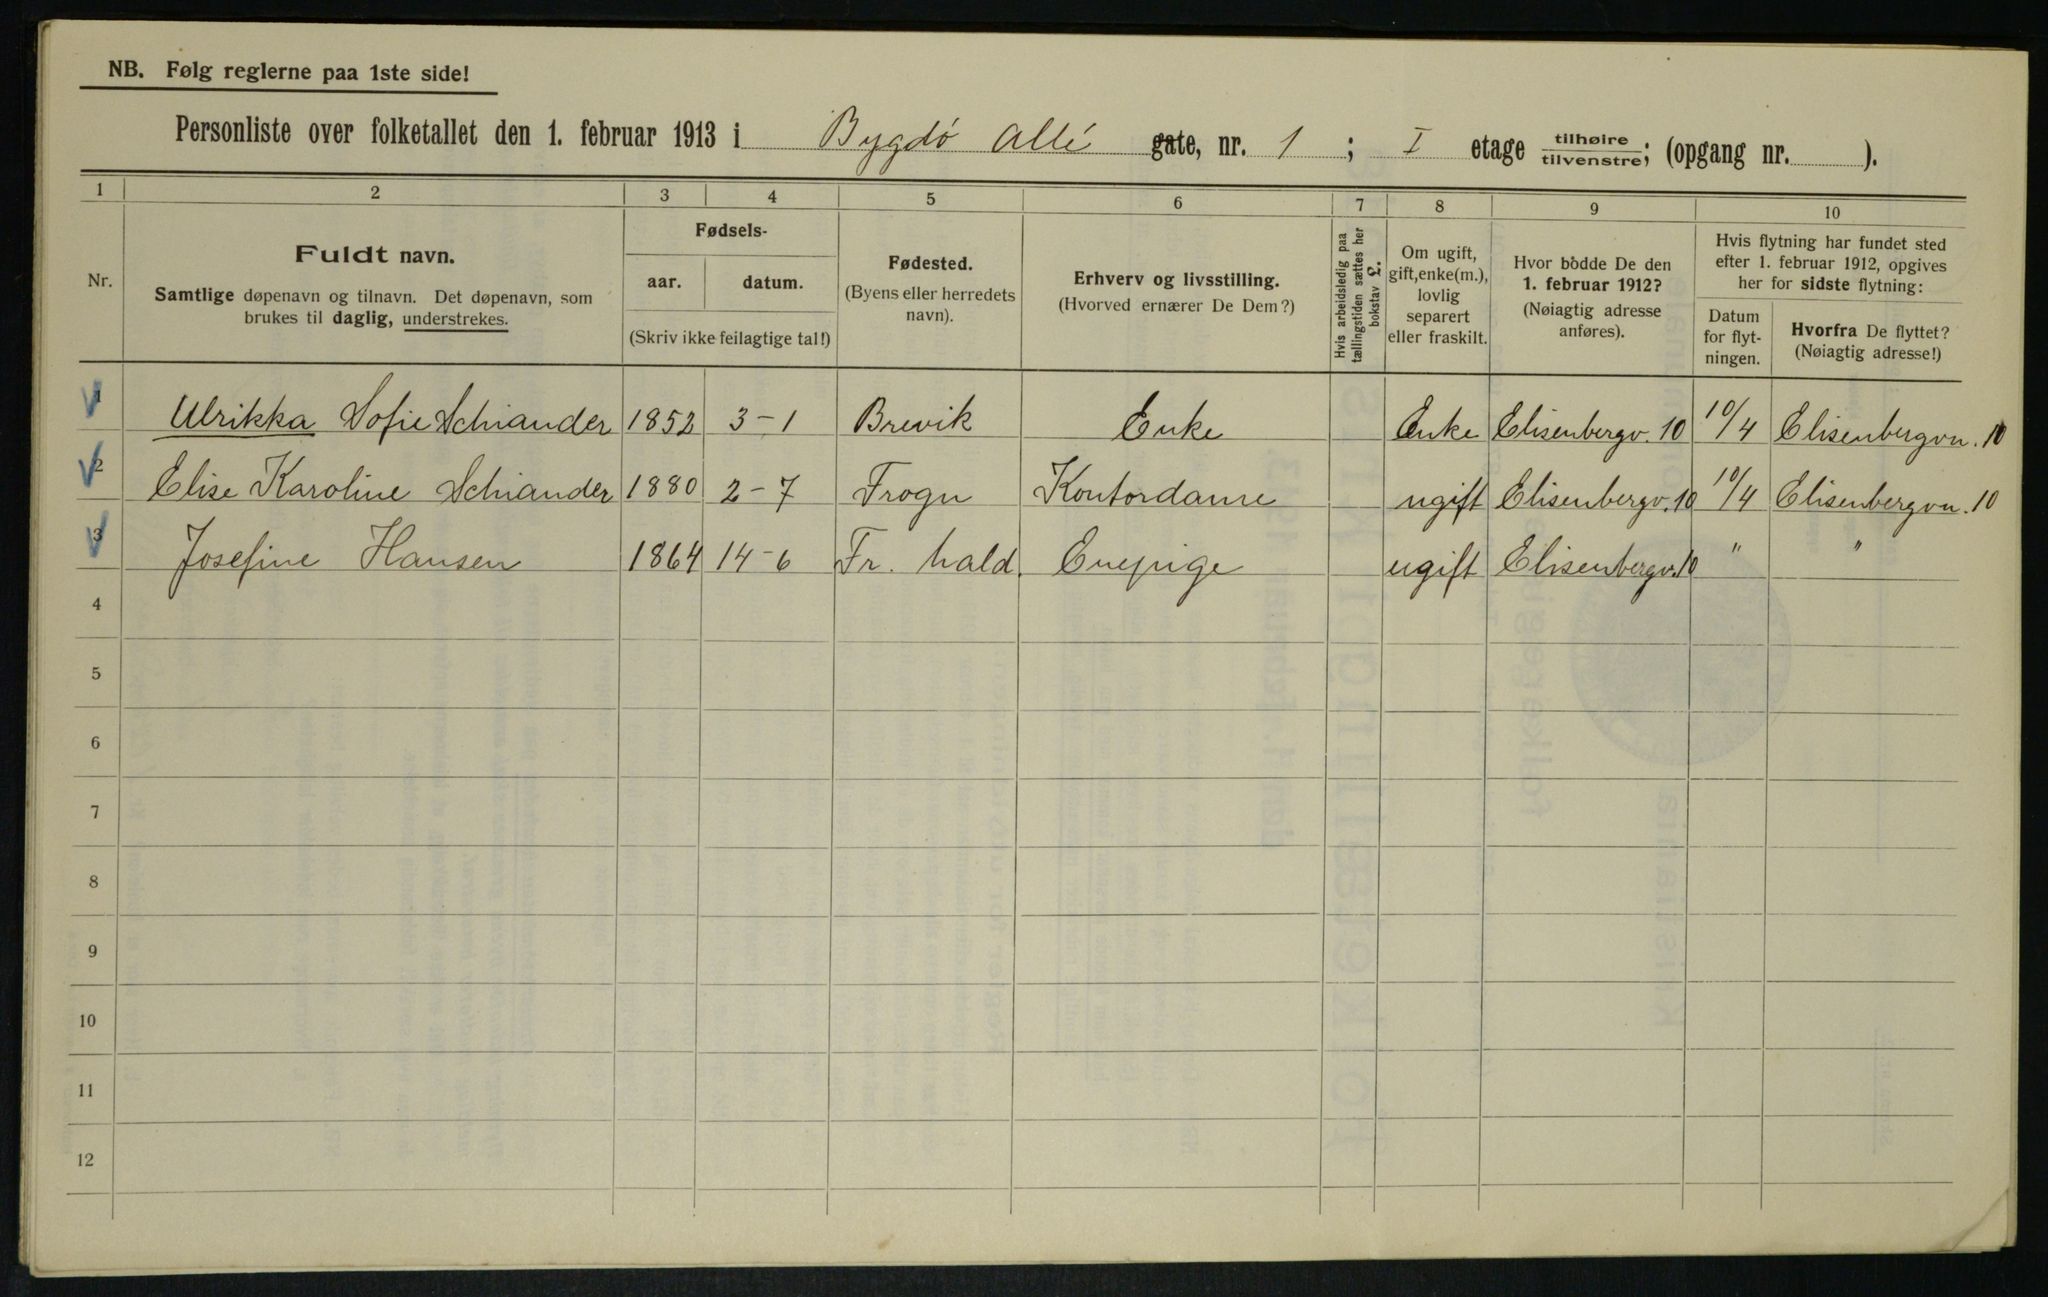 NB. Følg reglerne paa 1ste side!
Personliste over folketallet den 1. februar 1913 i Bygdö Allé gate, nr. 1 ; I etage tilhøire/tilvenstre; (opgang nr. ).
1 2 3 4 5 6 7 8 9 10
Nr.
Fuldt navn.
Samtlige døpenavn og tilnavn. Det døpenavn, som
brukes til daglig, understrekes.
Fødsels-
aar. datum.
(Skriv ikke feilagtige tal!)
Fødested.
(Byens eller herredets
navn).
Erhverv og livsstilling.
(Hvorved ernærer De Dem?)
Hvis arbeidsledig paa
tællingstiden sættes her
bokstav L.
Om ugift,
gift, enke(m.),
lovlig
separert
eller fraskilt.
Hvor bodde De den
1. februar 1912?
(Nøiagtig adresse
anføres).
Hvis flytning har fundet sted
efter 1. februar 1912, opgives
her for sidste flytning:
Datum
for flyt-
ningen.
Hvorfra De flyttet?
(Nøiagtig adresse!)
1 Ulrikka Sofie Schiander 1852 3-1 Brevik Enke Enke Elisenbergv. 10 10/4 Elisenbergvn. 10
2 Elise Karoline Schiander 1880 2-7 Frogn Kontordame ugift Elisenbergv. 10 10/4 Elisenbergvn. 10
3 Josefine Hansen 1864 14-6 Fr. hald. Enepige ugift Elisenbergv. 10 " "
4
5
6
7
8
9
10
11
12